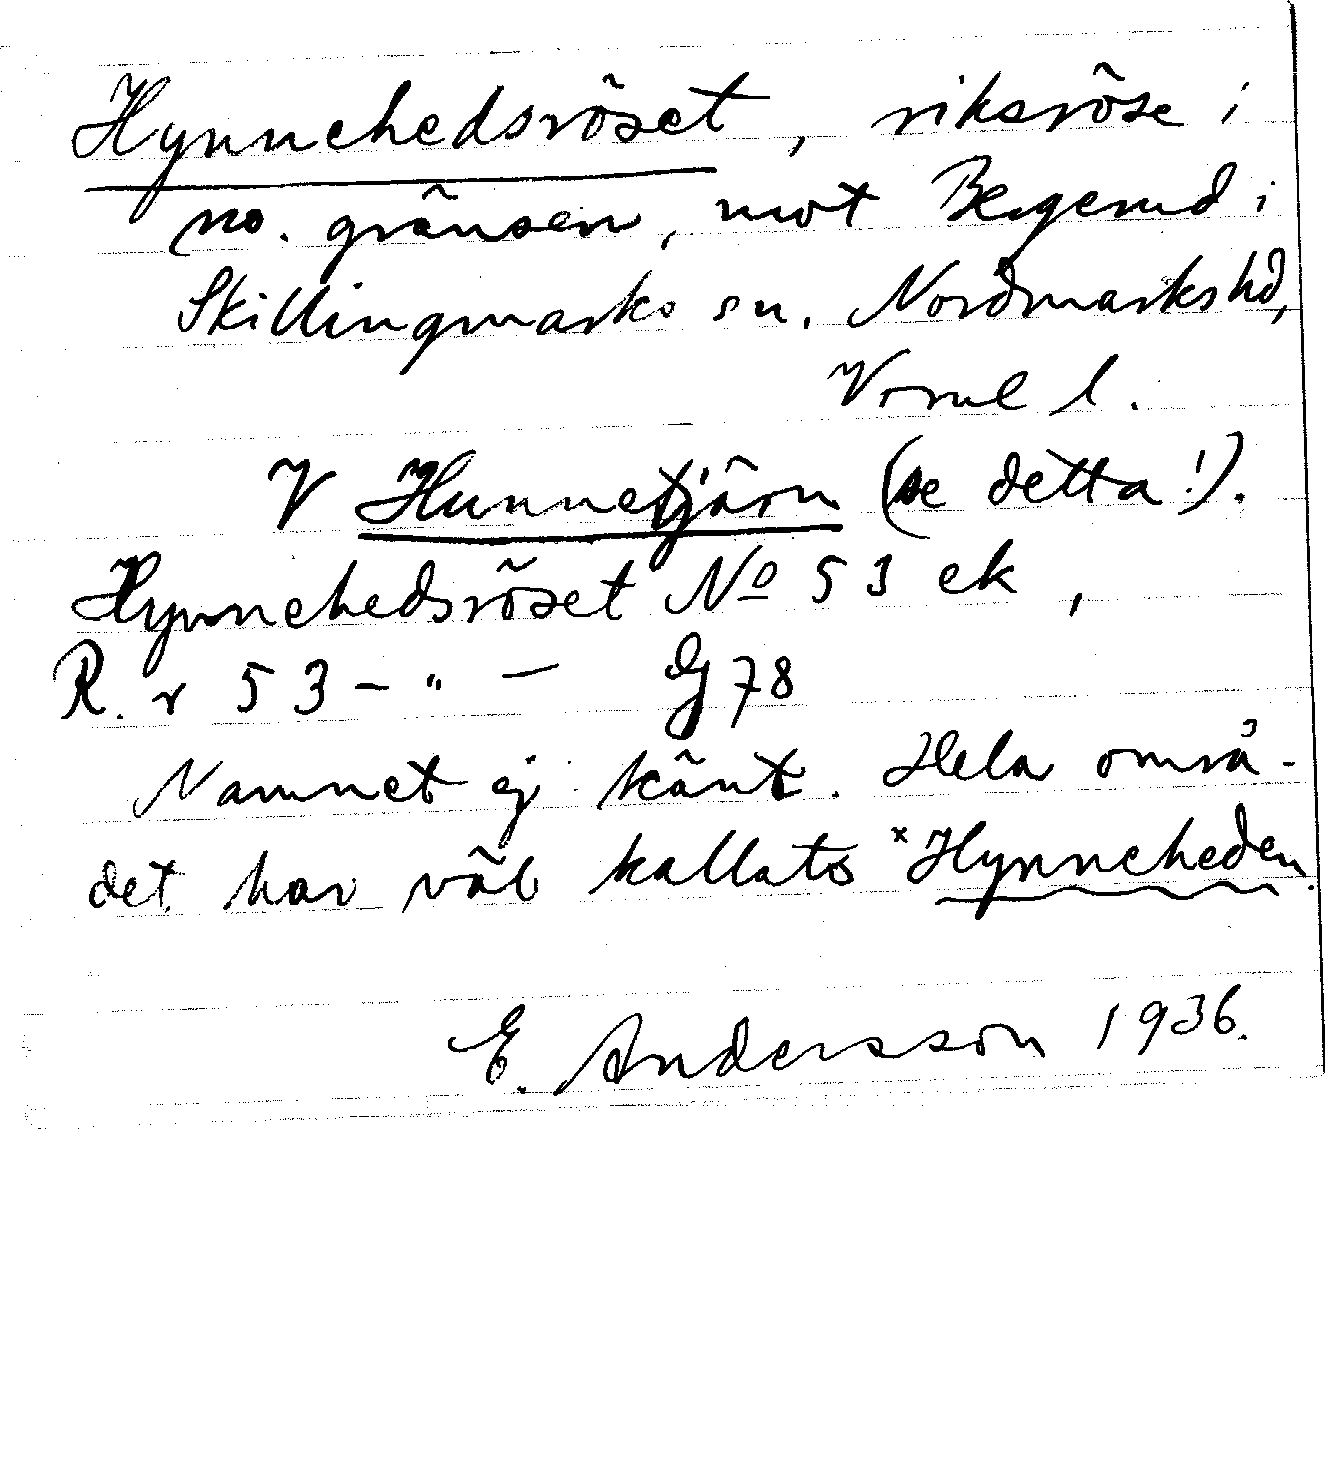 Hynnehedsröset, riksröse i
no. gränsen, mot Bergerud i
Skillingmarks sn. Nordmarks hd,
Vrml l.
V Hunnetjärn (se detta!).
Hynnehedsröset No 53 ek,
R. r 53 - " - Gj 78
Namnet ej känt. Hela områ-
det har väl kallats ˣHynneheden.
E. Andersson 1936.